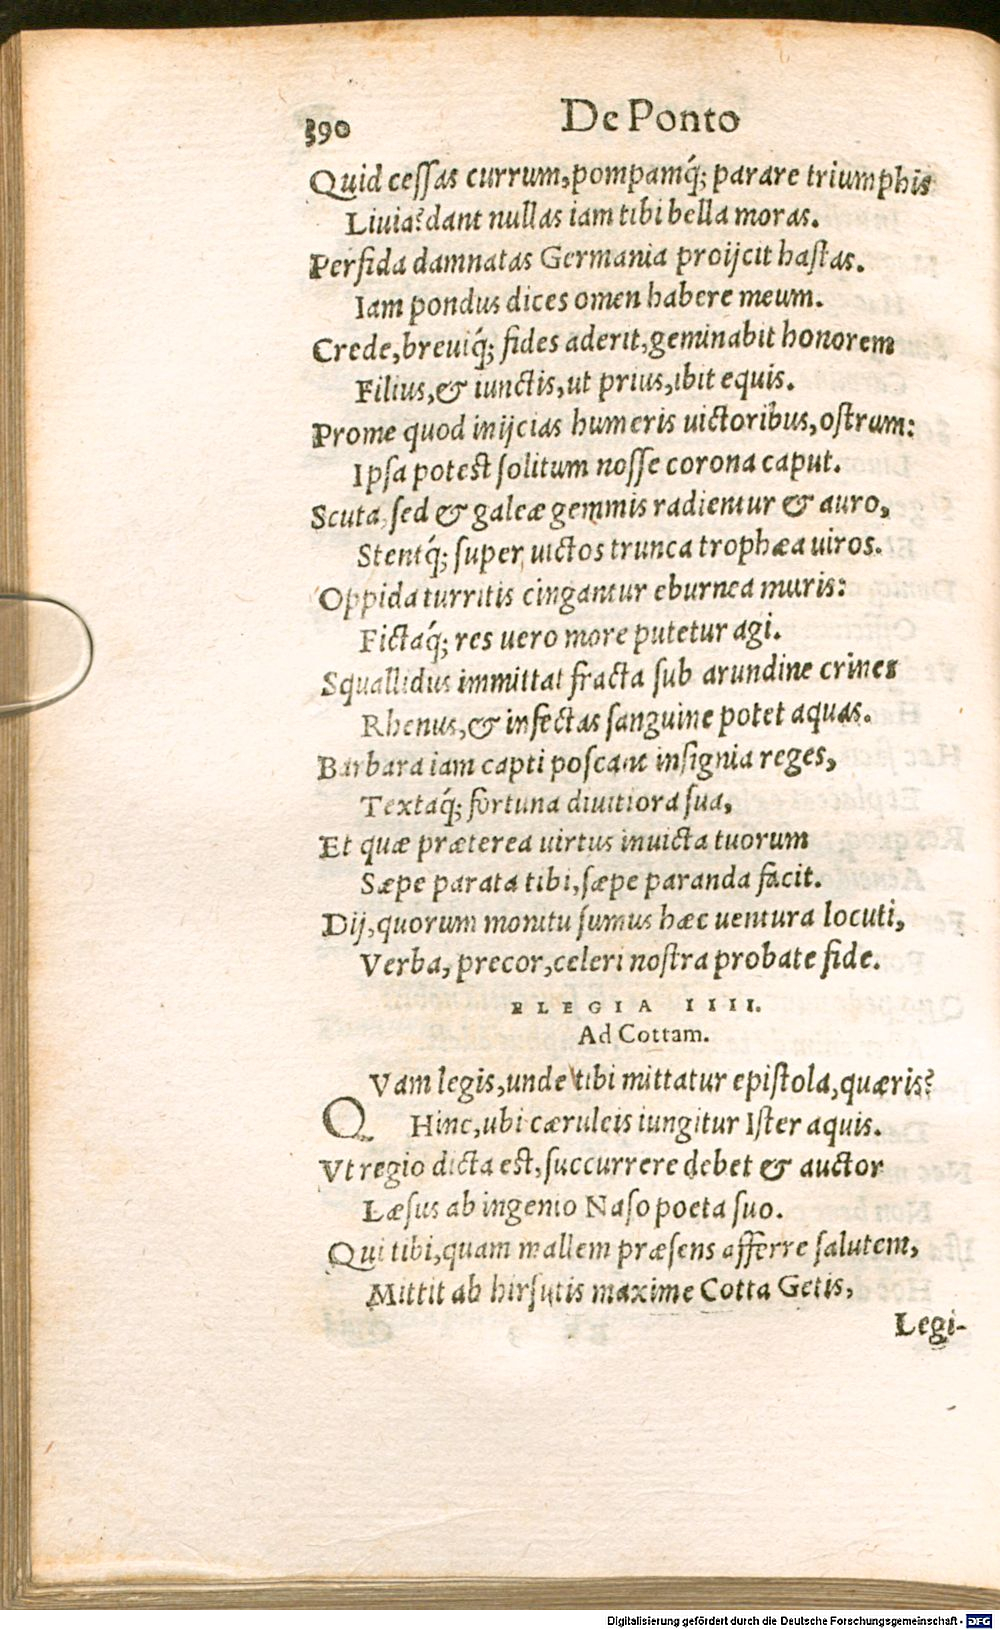 390 De Ponto
Quid cessas currum, pompamq́; parare triumphis
Liuia? dant nullas iam tibi bella moras.
Perfida damnatas Germania proijcit hastas.
Iam pondus dices omen habere meum.
Crede, breuiq́; fides aderit, geminabit honorem
Filius, & iunctis, ut prius, ibit equis.
Prome quod inijcias humeris uictoribus, ostrum:
Ipsa potest solitum nosse corona caput.
Scuta, sed & galeæ gemmis radientur & auro,
Stentq́; super uictos trunca trophæa uiros.
Oppida turritis cingantur eburnea muris:
Fictaq́; res uero more putetur agi.
Squallidus immittat fracta sub arundine crines
Rhenus, & infectas sanguine potet aquas.
Barbara iam capti poscant insignia reges,
Textaq́; fortuna diuitiora sua,
Et quæ præterea uirtus inuicta tuorum
Sæpe parata tibi, sæpe paranda facit.
Dij, quorum monitu sumus hæc uentura locuti,
Verba, precor, celeri nostra probate fide.
ELEGIA IIII.
Ad Cottam.
QVam legis, unde tibi mittatur epistola, quæris?
Hinc, ubi cæruleis iungitur Ister aquis.
Vt regio dicta est, succurrere debet & auctor
Læsus ab ingenio Naso poeta suo.
Qui tibi, quam mallem præsens afferre salutem,
Mittit ab hirsutis maxime Cotta Getis,
Legi-
Digitalisierung gefördert durch die Deutsche Forschungsgemeinschaft - DFG